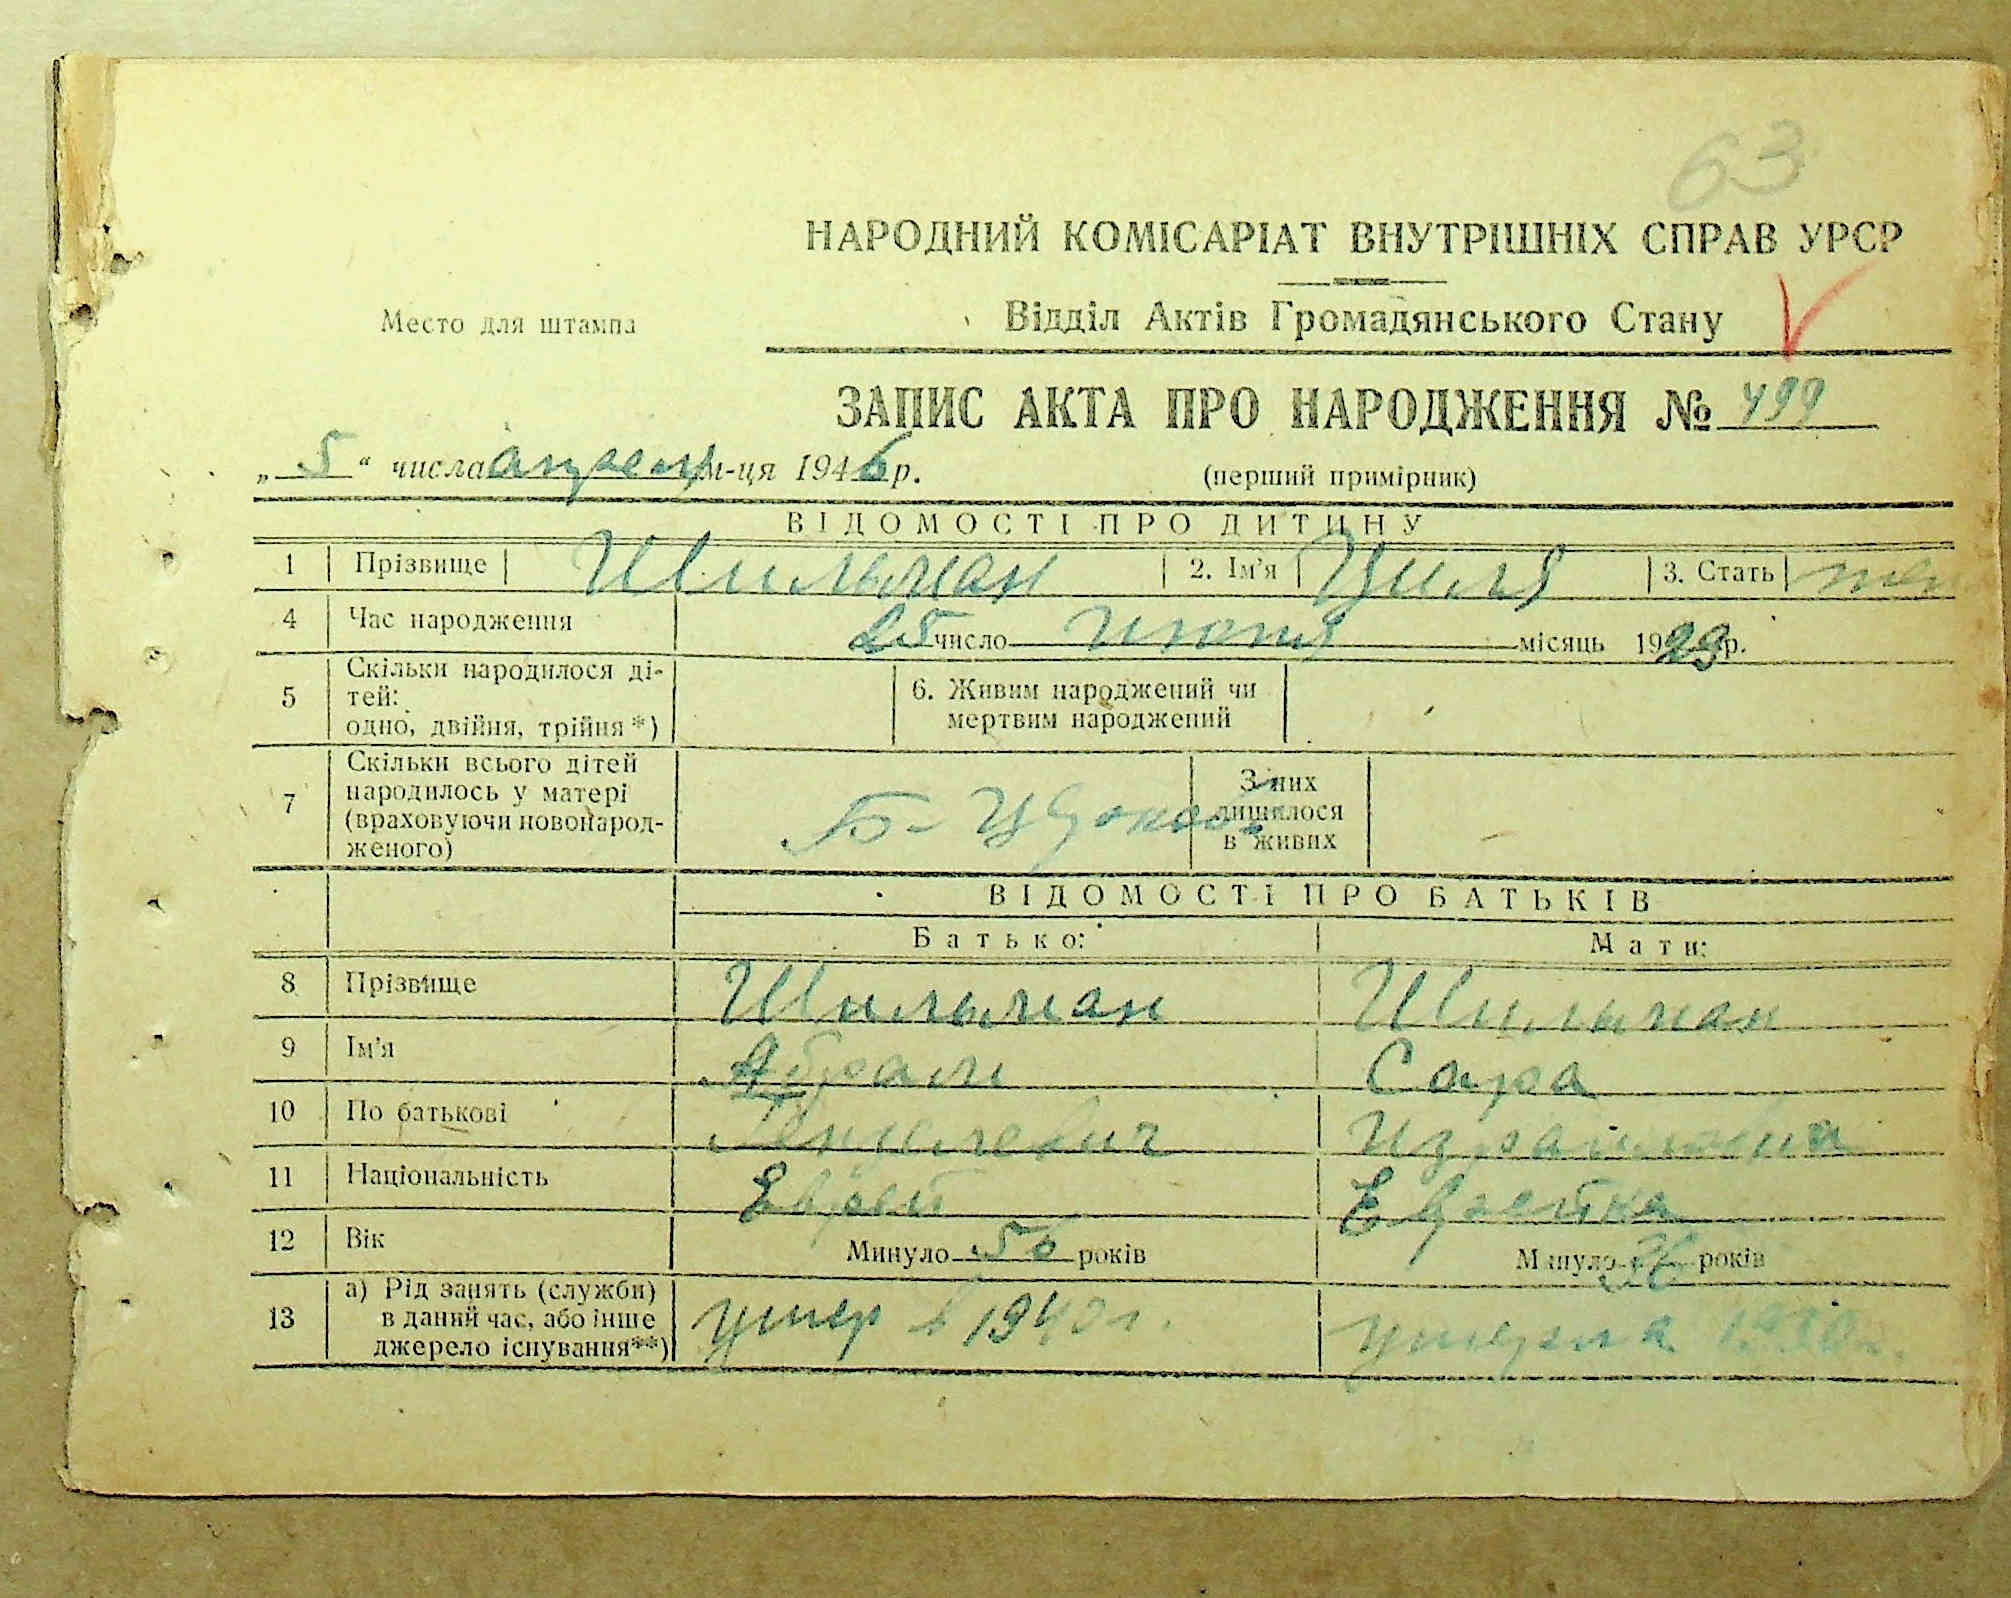 63
НАРОДНИЙ КОМІСАРІАТ ВНУТРІШНІХ СПРАВ УРСР
Место для штампа
Відділ Актів Громадянського Стану
ЗАПИС АКТА ПРО НАРОДЖЕННЯ № 499
„ 5 “ числа апреля м-ця 1946 р.
(перший примірник)
ВІДОМОСТІ ПРО ДИТИНУ
1 Прізвище Шильман 2. Ім'я Циля 3. Стать жен
4 Час народження 25 число июня місяць 1929 р.
5 Скільки народилося ді-
тей:
одно, двійня, трійня *)
6. Живим народжений чи
мертвим народжений
7 Скільки всього дітей
народилось у матері
(враховуючи новонарод-
женого)
З них
лишилося
в живих
ВІДОМОСТІ ПРО БАТЬКІВ
Батько: Мати:
8 Прізвище Шильман Шильман
9 Ім'я Абрам Сара
10 По батькові Израилевна
11 Національність Еврей Еврейка
12 Вік Минуло 56 років Минуло 36 років
13 а) Рід занять (служби)
в даний час, або інше
джерело існування**)
умер в 1940 г. умерла 1930 г.